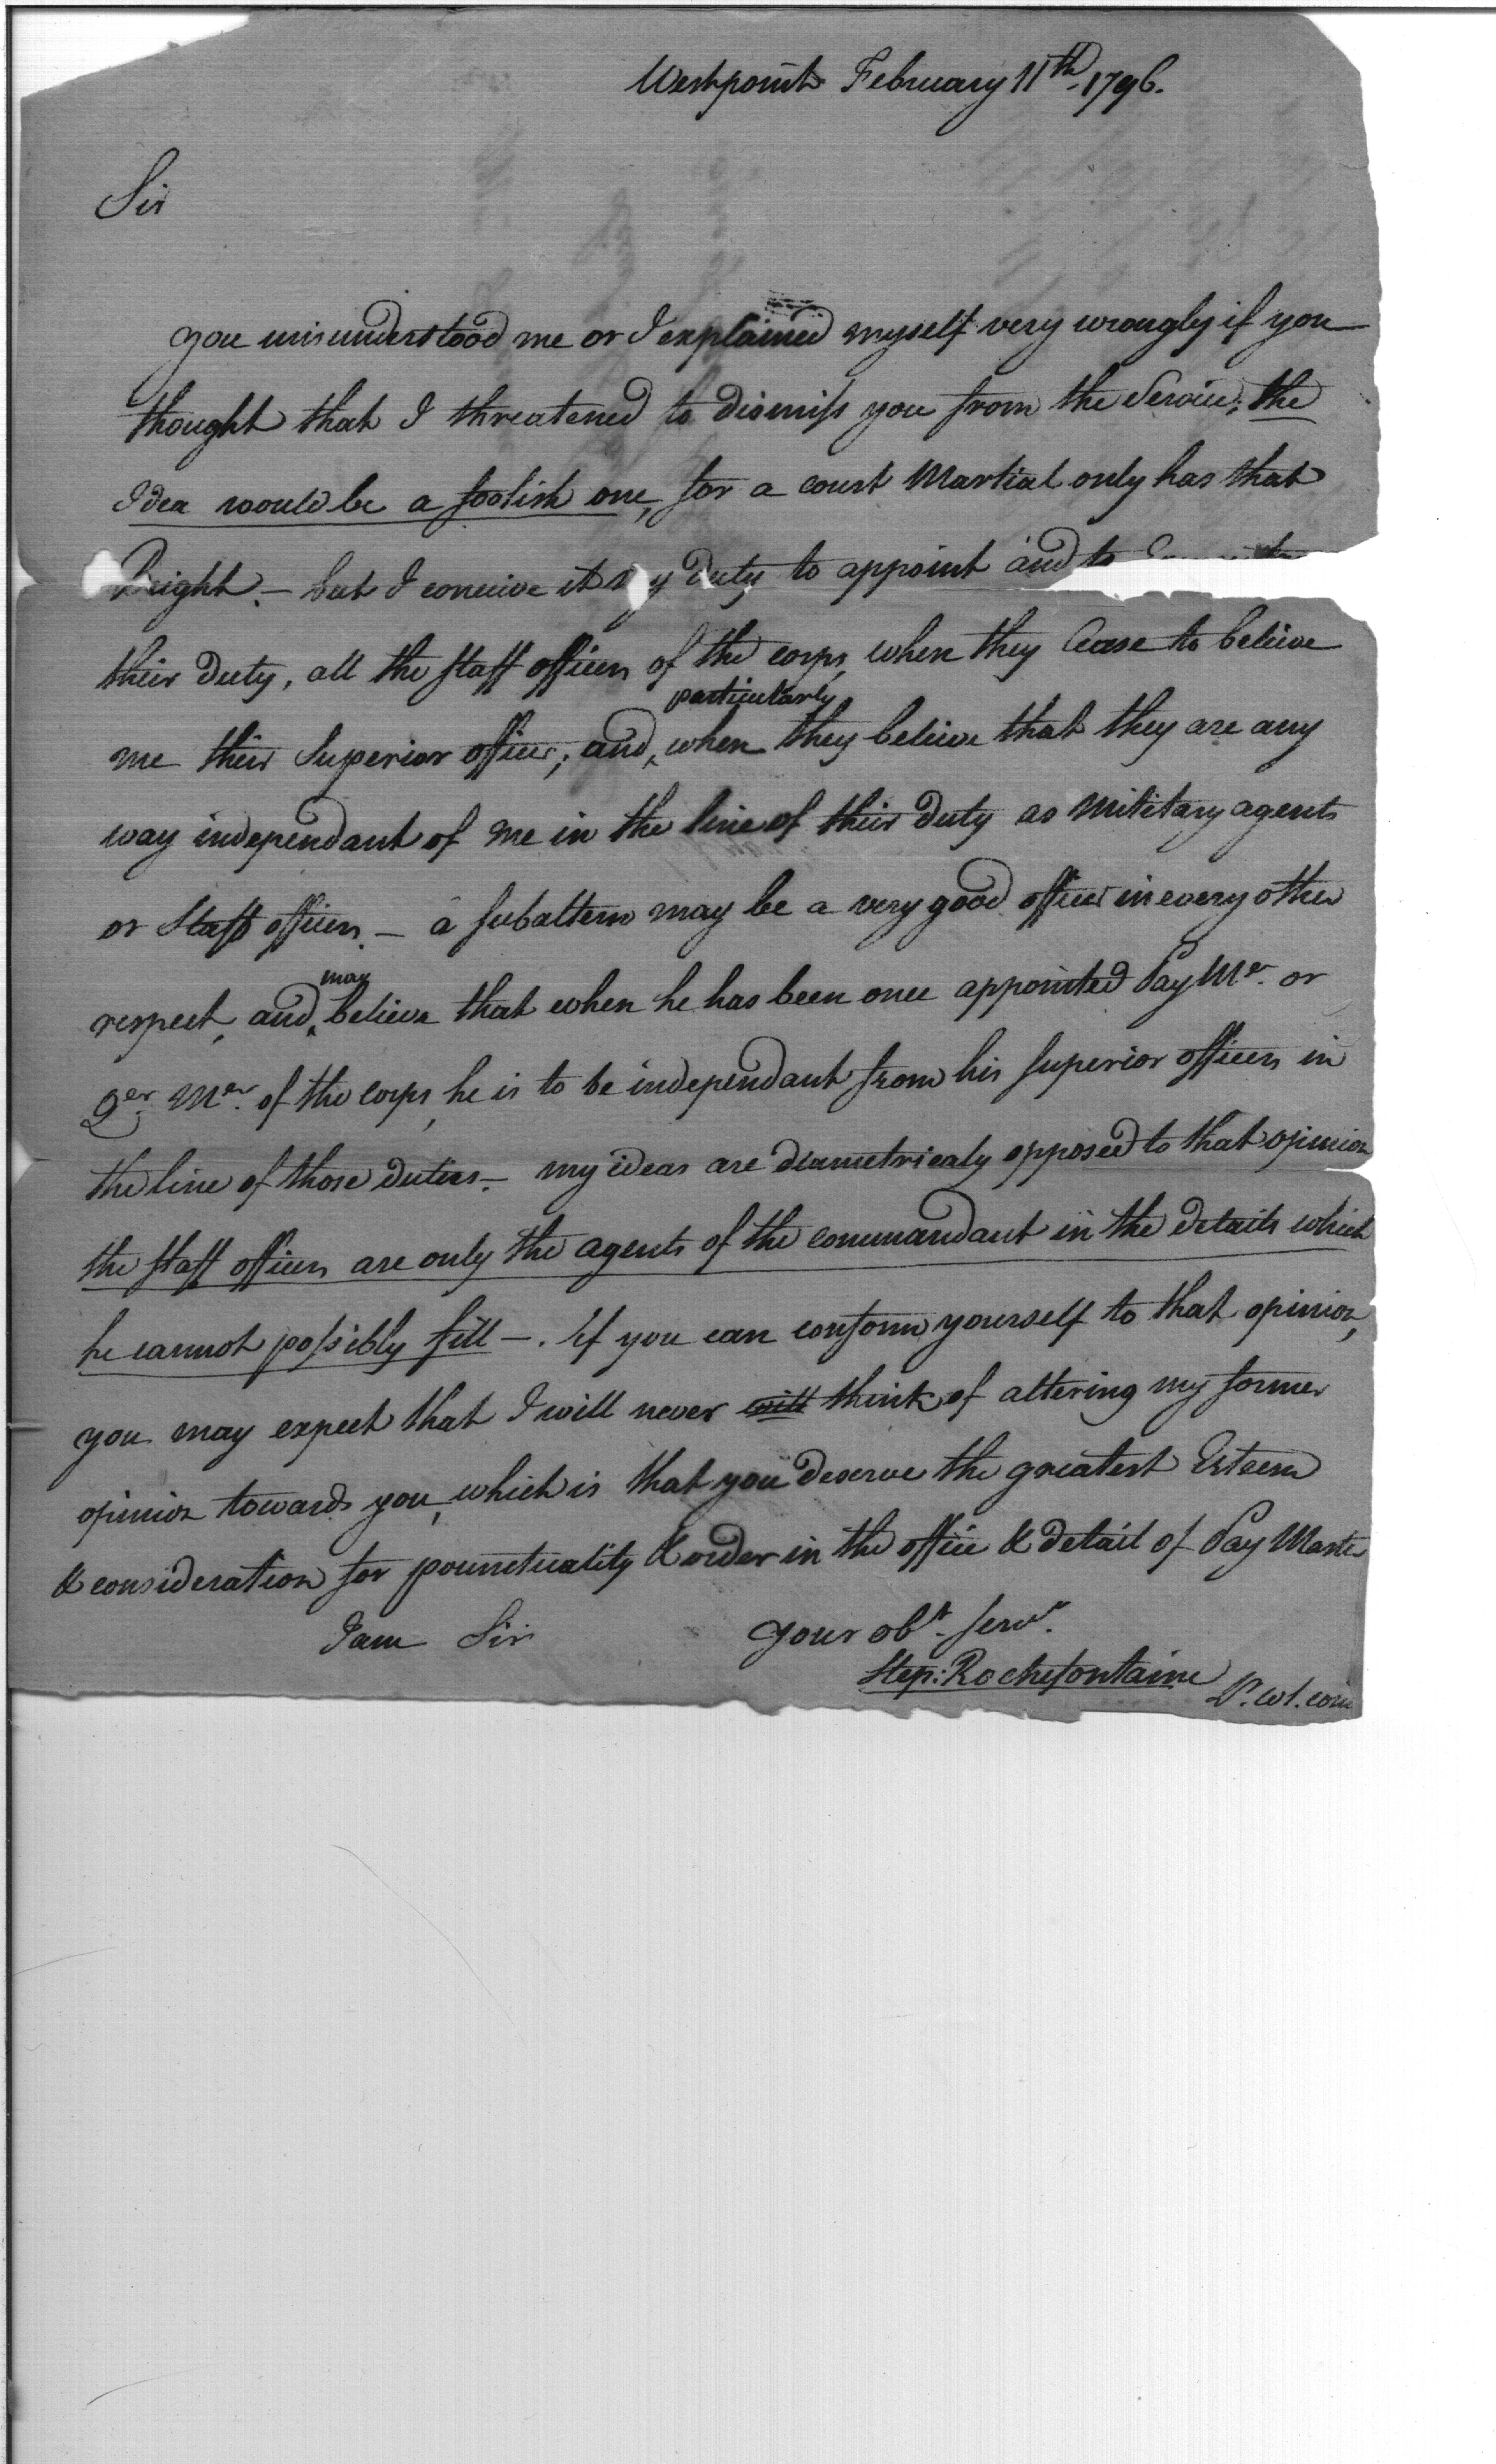 Westpoint February 11th. 1796.
Sir
you misunderstood me or I explained myself very wrongly if you
thought that I threatened to dismiss you from the Service; the
Idea would be a foolish one, for a court Martial only has that
Right. – but I conceive it my duty to appoint and to
their Duty, all the staff officers of the corps, when they Cease to believe
particularly
me their Superior officer; and, when they believe that they are any
way independant of me in the line of their duty as Military agents
or Staff officers. – a subaltern may be a very good officer in every other
may
respect, and believe that when he has been once appointed Pay Mr. or
Qer. Mer. of the corps, he is to be independant from his superior officers in
the line of those duties. – my ideas are diametricaly opposed to that opinion
the staff officers are only the agents of the commandant in the details which
he cannot possibly fill – . If you can conform yourself to that opinion,
you may expect that I will never will think of altering my former
opinion towards you, which is that you deserve the greatest Esteem
& consideration for pounctuality & order in the office & detail of Pay Master
I am Sir your obt. servt.
Step: Rochefontaine